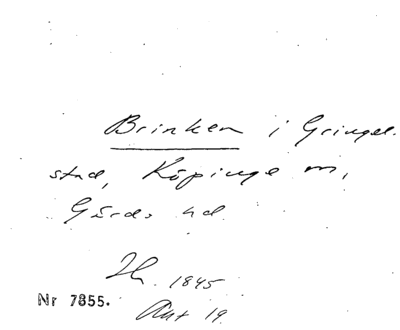 Brinken i Gringel-
stad, Köpinge sn,
Gärds hd
1845
Nr 7855.
Akt 19